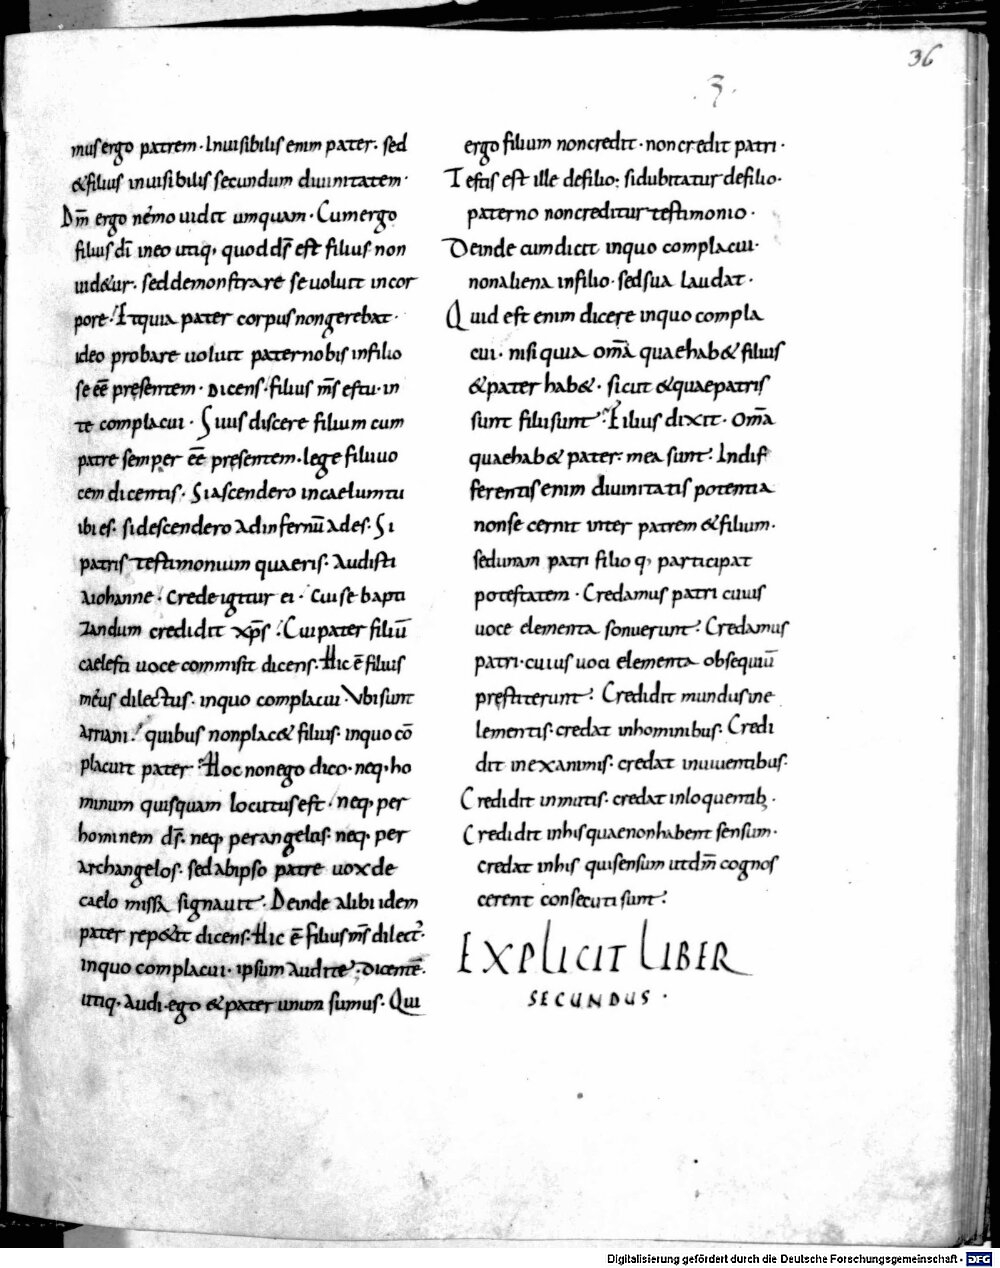 36
·3·
mus ergo patrem· Inuisibilis enim pater· sed
&filius inuisibilis secundum diuinitatem·
Dm̄ ergo némo uidit umquam· Cum ergo
filius di̅ ineo utiq, quod ds̅ est filius non
uid&ur· sed demonstrare se uoluit incor
pore· Et quia pater corpus non gerebat·
ideo probare uoluit pater nobis infilio
se ee̅ presentem· dicens· filius ms̅ es tu· in
te complacui· Si uis discere filium cum
patre semper ee̅ presentem· lege filii uo
cem dicentis· Si ascendero incaelum tu
ibi es· si descendero ad infernu̅ ades· Si
patris testimonium quaeris· Audisti
aiohanne· Crede igitur ei· Cui se bapti
zandum credidit xp̅s· Cui pater filiu̅
caelesti uoce commisit dicens· Hic e̅ filius
méus dilectus· inquo complacui· Ubi sunt
arriani· quibus non plac& filius· inquo co̅
placuit pater· Hoc non ego dico· neq, ho
minum quisquam locutus est· neq, per
hominem ds̅· neq, per angelos· neq, per
archangelos· sed abipso patre uox de
caelo missa signauit· Deinde alibi idem
pater rep&it dicens· Hic e̅ filius ms̅ dilect'·
inquo complacui· ipsum audite· dicente̅·
utiq, Audi· ego &pater unum sumus· Qui
ergo filium non credit· non credit patri·
Testis est ille defilio· si dubitatur defilio·
paterno non creditur testimonio·
Deinde cum dicit inquo complacui·
non aliena infilio· sed sua laudat·
Quid est enim dicere inquo compla
cui· nisi quia om̅a quae hab& filius
&pater hab&· sicut &quae patris
sunt filii sunt· Filius dixit· Om̅a
quae hab& pater· mea sunt· Indif
ferentis enim diuinitatis potentia
non se cernit inter patrem &filium·
sed unam patri filio q, participat
potestatem· Credamus patri cuius
uoce elementa sonuerunt· Credamus
patri· cuius uoci elementa obsequiu̅
prestiterunt· Credidit mundus ine
lementis· credat inhominibus· Credi
dit inexanimis· credat inuiuentibus·
Credidit inmutis· credat inloquentib,·
Credidit inhis quae non habent sensum·
credat inhis qui sensum ut dm̅ cognos
cerent consecuti sunt·
EXPLICIT LIBER
SECUNDUS·
Digitalisierung gefördert durch die Deutsche Forschungsgemeinschaft - DFG